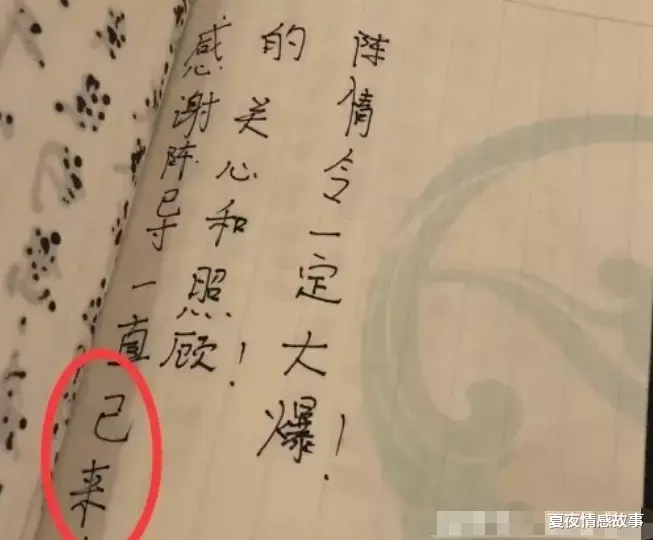 感谢陈导一直己来
的关心和照顾！
陈倩令一定大爆！
夏夜情感故事